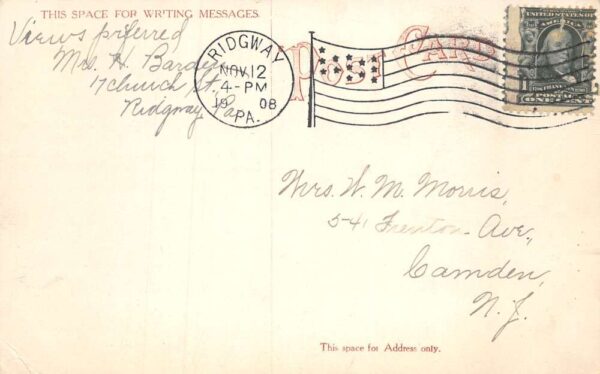 THIS SPACE FOR WRITING MESSAGES.
Views preferred
Mrs. H. Bardin
7 Church St.
Ridgway, Pa.
RIDGWAY
NOV 12
4-PM
19 08
PA.
POST CARD
UNITED STATES OF
AMERICA
1
POSTAGE
ONE CENT
Mrs. W. M. Morris,
541 Trenton Ave.,
Camden,
N. J.
This space for Address only.